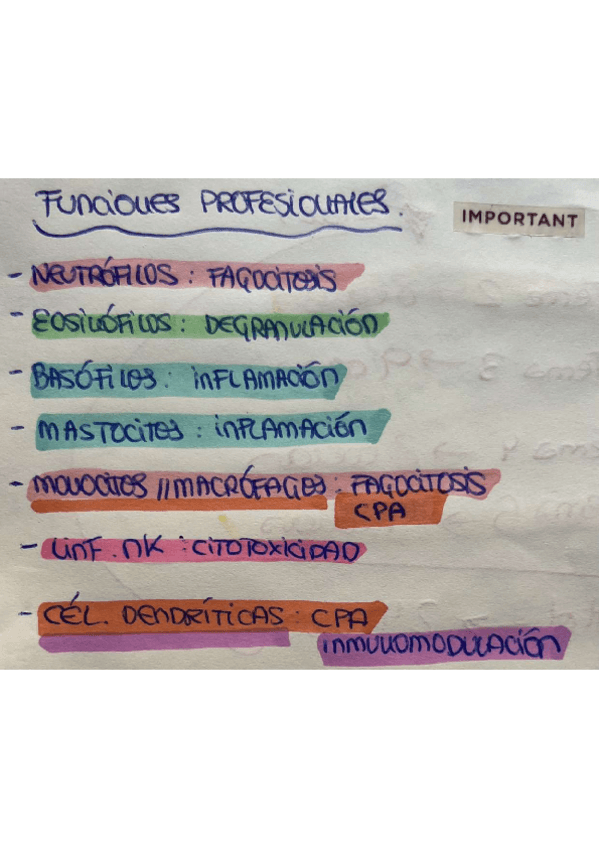 FUNCIONES PROFESIONALES.
IMPORTANT
- NEUTRÓFILOS : FAGOCITOSIS
- EOSINÓFILOS : DEGRANULACIÓN
- BASÓFILOS : INFLAMACIÓN
- MASTOCITOS : INFLAMACIÓN
- MONOCITOS // MACRÓFAGOS : FAGOCITOSIS
CPA
- LINF. NK : CITOTOXICIDAD
- CÉL. DENDRÍTICAS : CPA
INMUNOMODULACIÓN